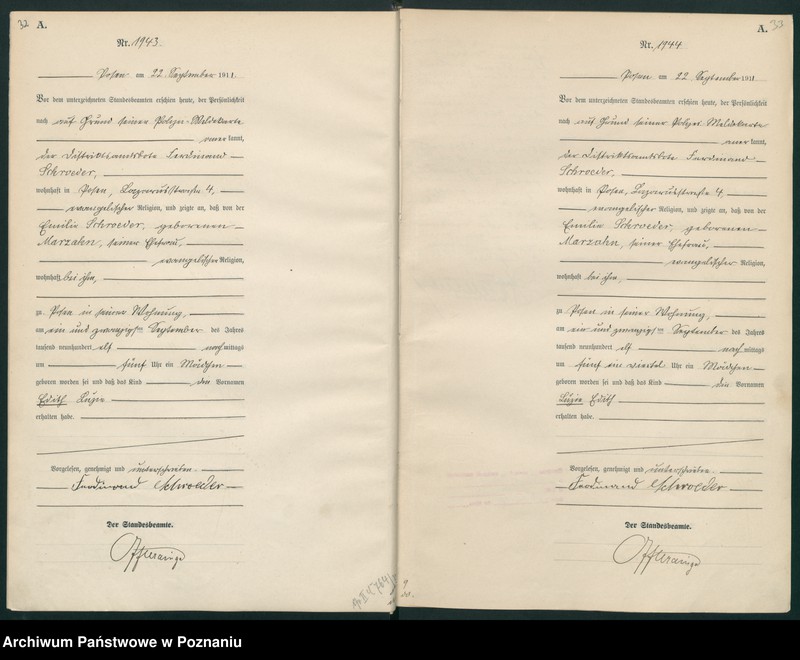 32 A.
Nr. 1943.
Posen am 22 September 1911.
Vor dem unterzeichneten Standesbeamten erschien heute, der Persönlichkeit
nach auf Grund seiner Polizei-Meldekarte
anerkannt,
der Distriktsamtsbote Ferdinand
Schroeder,
wohnhaft in Posen, Lazarusstraße 4,
evangelischer Religion, und zeigte an, daß von der
Emilie Schroeder, geborenen
Marzahn, seiner Ehefrau,
evangelischer Religion,
wohnhaft bei ihm,
zu Posen in seiner Wohnung,
am ein und zwanzigsten September des Jahres
tausend neunhundert elf nachmittags
um fünf Uhr ein Mädchen
geboren worden sei und daß das Kind den Vornamen
Edith Luzie
erhalten habe.
Vorgelesen, genehmigt und unterschrieben
Ferdinand Schroeder
Der Standesbeamte.
A. 33
Nr. 1944
Posen am 22 September 1911
Vor dem unterzeichneten Standesbeamten erschien heute, der Persönlichkeit
nach auf Grund seiner Polizei-Meldekarte
anerkannt,
der Distriktsamtsbote Ferdinand
Schroeder,
wohnhaft in Posen, Lazarusstraße 4,
evangelischer Religion, und zeigte an, daß von der
Emilie Schroeder, geborenen
Marzahn, seiner Ehefrau,
evangelischer Religion,
wohnhaft bei ihm,
zu Posen in seiner Wohnung,
am ein und zwanzigsten September des Jahres
tausend neunhundert elf nachmittags
um fünf ein viertel Uhr ein Mädchen
geboren worden sei und daß das Kind den Vornamen
Luzie Edith
erhalten habe.
Vorgelesen, genehmigt und unterschrieben
Ferdinand Schroeder
Der Standesbeamte.
Archiwum Państwowe w Poznaniu